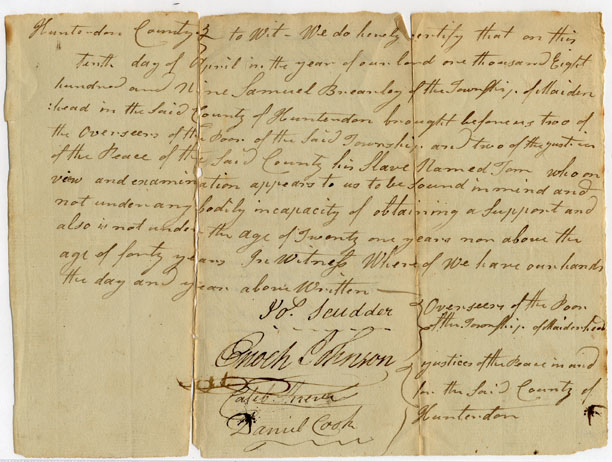 Huntendon County } to Wit - We do hereby Certify that on this
tenth day of April in the year of our lord one thousand Eight
hundred and Nine Samuel Brearley of the Township of Maiden
head in the Said County of Huntendon brought before us two of
the Overseers of the Poor of the Said Township and two of the Justices
of the Peace of the Said County his Slave Named Tom who on
view and examination appears to us to be Sound in mind and
not under any bodily incapacity of obtaining a Support and
also is not under the age of Twenty one years nor above the
age of forty years In Witness Where of We have our hands
the day and year above Written —
Jos. Scudder
Enoch Johnson
} Overseers of the Poor
of the Township of Maidenhead
Daniel Cook
} Justices of the Peace in and
for the Said County of
Huntendon